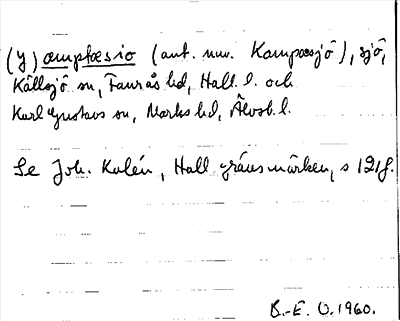 (y) æmptæsio (ant. nuv. Kampasjö), sjö,
Källsjö sn, Faurås hd, Hall. l. och
Karl Gustavs sn, Marks hd, Älvsb. l.
Se Joh. Kalén, Hall gränsmärken, s 121f.
B.-E. O. 1960.